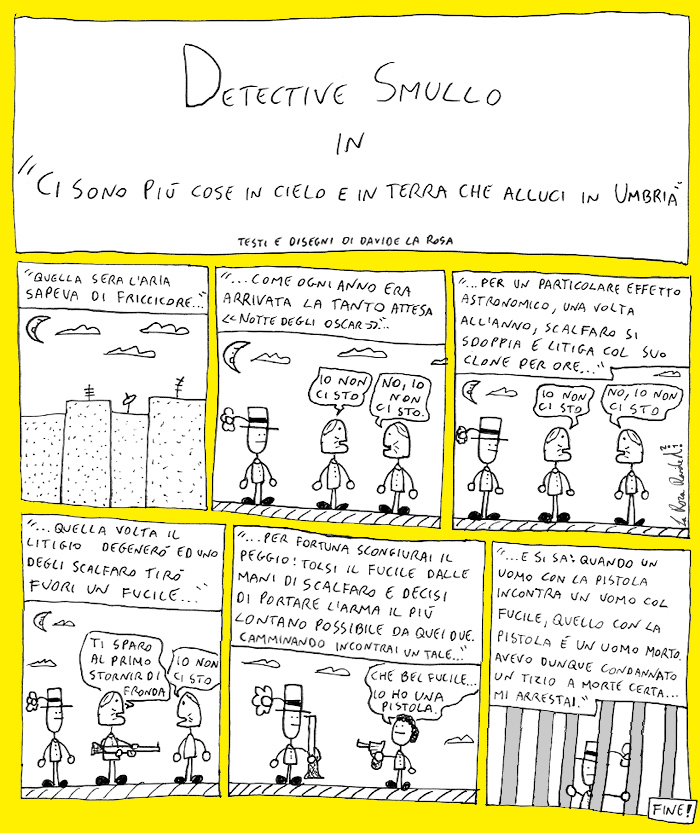 DETECTIVE SMULLO
IN
"CI SONO PIÚ COSE IN CIELO E IN TERRA CHE ALLUCI IN UMBRIA"
TESTI E DISEGNI DI DAVIDE LA ROSA
"QUELLA SERA L'ARIA
SAPEVA DI FRICCICORE..."
"...COME OGNI ANNO ERA
ARRIVATA LA TANTO ATTESA
<<NOTTE DEGLI OSCAR>>"...
IO NON
CI STO
NO, IO
NON
CI STO.
"...PER UN PARTICOLARE EFFETTO
ASTRONOMICO, UNA VOLTA
ALL'ANNO, SCALFARO SI
SDOPPIA E LITIGA COL SUO
CLONE PER ORE..."
IO NON
CI STO
NO, IO NON
CI STO
"...QUELLA VOLTA IL
LITIGIO DEGENERÓ ED UNO
DEGLI SCALFARO TIRÓ
FUORI UN FUCILE..."
TI SPARO
AL PRIMO
STORNIR DI
FRONDA
IO NON
CI STO
"...PER FORTUNA SCONGIURAI IL
PEGGIO: TOLSI IL FUCILE DALLE
MANI DI SCALFARO E DECISI
DI PORTARE L'ARMA IL PIÚ
LONTANO POSSIBILE DA QUEI DUE.
CAMMINANDO INCONTRAI UN TALE..."
CHE BEL FUCILE...
IO HO UNA
PISTOLA.
"...E SI SA: QUANDO UN
UOMO CON LA PISTOLA
INCONTRA UN UOMO COL
FUCILE, QUELLO CON LA
PISTOLA É UN UOMO MORTO.
AVEVO DUNQUE CONDANNATO
UN TIZIO A MORTE CERTA...
MI ARRESTAI."
FINE!